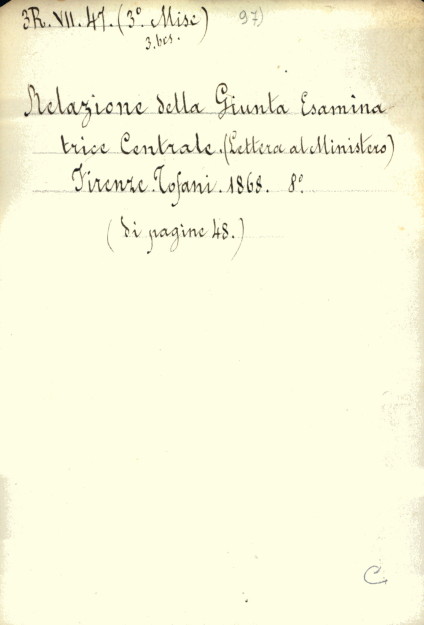 3R. VII. 47. (3º Misc) 97)
3. bis.
Relazione della Giunta Esamina
trice Centrale. (Lettera al Ministero)
Firenze. Tofani. 1868. 8º
(di pagine 48.)
C